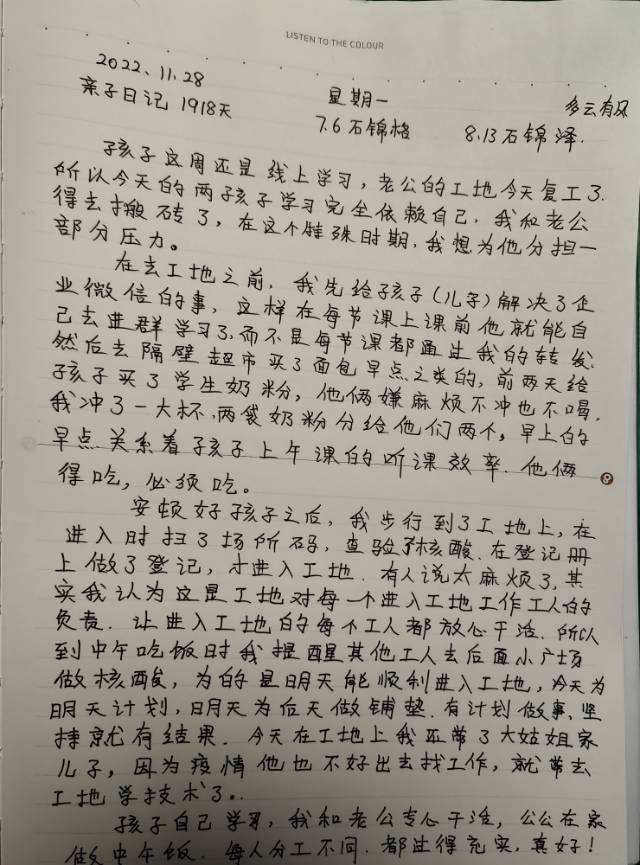 LISTEN TO THE COLOUR
2022、11.28
星期一
多云有风
亲子日记 1918天
7.6石锦格
8.13石锦泽.
孩子这周还是线上学习，老公的工地今天复工了.
所以今天的两孩子学习完全依赖自己，我和老公
得去搬砖了，在这个特殊时期，我想为他分担一
部分压力。
在去工地之前，我先给孩子(儿子)解决了企
业微信的事，这样在每节课上课前他就能自
己去进群学习了，而不是每节课都通过我的转发.
然后去隔壁超市买了面包早点之类的，前两天给
孩子买了学生奶粉，他俩嫌麻烦不冲也不喝.
我冲了一大杯，两袋奶粉分给他们两个，早上的
早点关系着孩子上午课的听课效率.他俩
得吃，必须吃。
安顿好孩子之后，我步行到了工地上，在
进入时扫了场所码，查验了核酸.在登记册
上做了登记，才进入工地.有人说太麻烦了，其
实我认为这是工地对每一个进入工地工作工人的
负责.让进入工地的每个工人都放心干活.所以
到中午吃饭时我提醒其他工人去后面小广场
做核酸，为的是明天能顺利进入工地，今天为
明天计划，明天为后天做铺垫.有计划做事、坚
持就有结果.今天在工地上我还带了大姑姐家
儿子，因为疫情他也不好出去找工作，就带去
工地学技术了..
孩子自己学习，我和老公专心干活，公公在家
做中午饭.每人分工不同.都过得充实，真好!